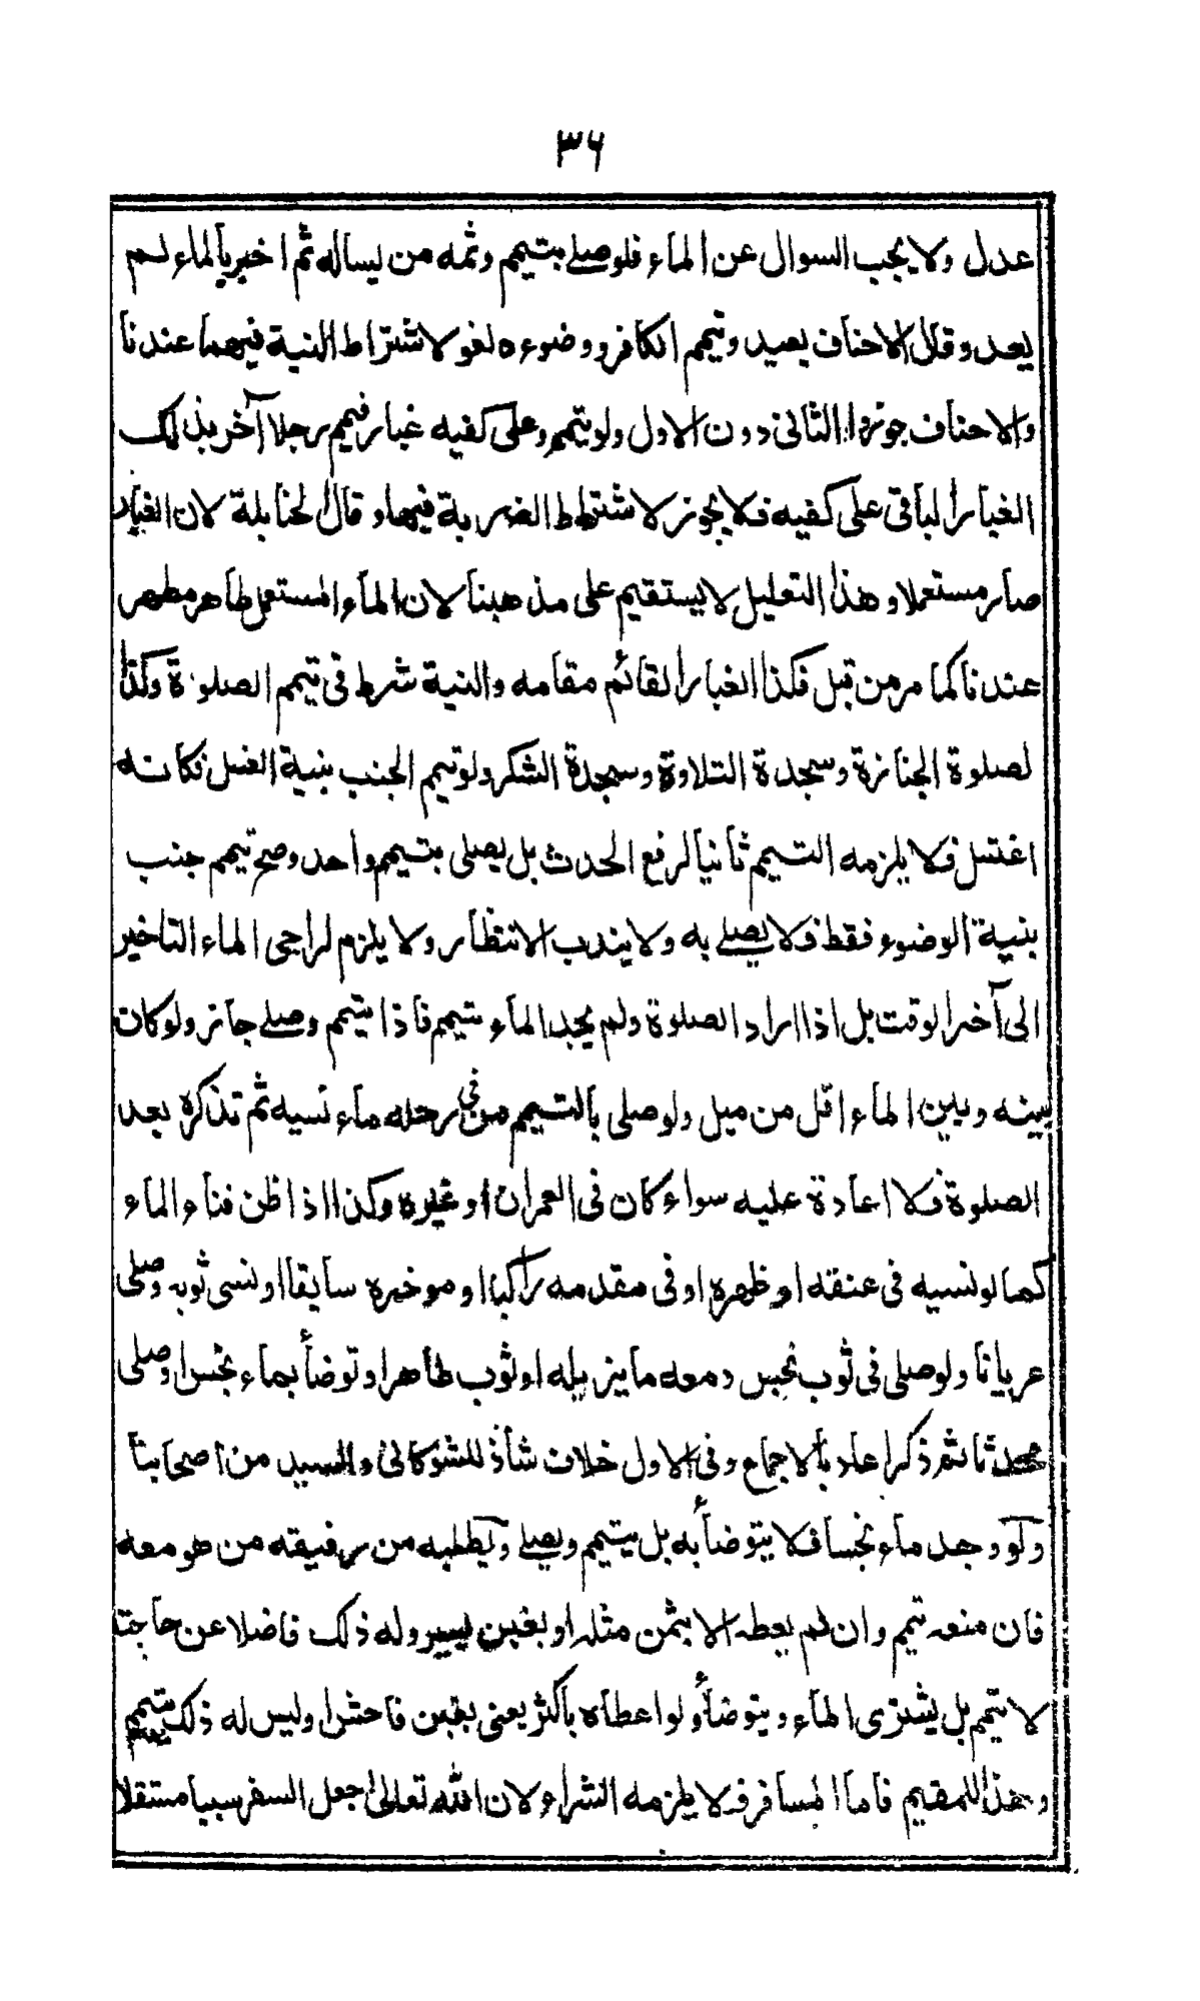 ٣٦
عدل ولا يجب السوال عن الماء فلو صلے بتيمم وثمه من يساله ثم اخبر بالماء لم
يعد وقال الاحناف يعيد وتيمم الكافر ووضوءه لغو لاشتراط النية فيهما عندنا
والاحناف جوزوا الثانى دون الاول ولو تيمم وعلى كفيه غبار فيمم رجلا آخر بذلك
الغبار الباقى على كفيه فلا يجوز لاشتراط الضربة فيهما وقال الحنابلة لان الغبار
صار مستعملا وهذا التعليل لا يستقيم على مذهبنا لان الماء المستعمل طاهر مطهر
عندنا كما مر من قبل فكذا الغبار القائم مقامه والنية شرط فى تيمم الصلوة وكذا
لصلوة الجنازة وسجدة التلاوة وسجدة الشكر ولو تيمم الجنب بنية الغسل فكانه
اغتسل فلا يلزمه التيمم ثانيا لرفع الحدث بل يصلى بتيمم واحد وصح تيمم جنب
بنية الوضوء فقط فلا يصلے به ولا يندب الانتظار ولا يلزم لراجى الماء التاخير
الى آخر الوقت بل اذا اراد الصلوة ولم يجد الماء تيمم فاذا تيمم وصلے جاز ولو كان
بينه وبين الماء اقل من ميل ولو صلى بالتيمم من فى رحله ماء نسيه ثم تذكره بعد
الصلوة فلا اعادة عليه سواء كان فى العمران او غيره وكذا اذا ظن فناء الماء
كما لو نسيه فى عنقه او ظهره او فى مقدمه راكبا او موخره سايقا او نسى ثوبه وصلى
عريانا ولو صلى فى ثوب نجس ومعه ما يزيله او ثوب طاهر او توضأ بماء نجس او صلى
محدثا ثم ذكر اعاد بالاجماع وفى الاول خلاف شاذ للشوكانى والسيد من اصحابنا
ولو وجد ماء نجسا فلا يتوضأ به بل يتيمم ويصلے ويطلبه من رفيقه من هو معه
فان منعه تيمم وان لم يعطه الا بثمن مثله او بغبن يسير وله ذلك فاضلا عن حاجته
لا يتيمم بل يشترى الماء ويتوضأ ولو اعطاه باكثر يعنى بغبن فاحش او ليس له ذلك يتيمم
وهذا للمقيم فاما المسافر فلا يلزمه الشراء لان الله تعالى جعل السفر سببا مستقلا